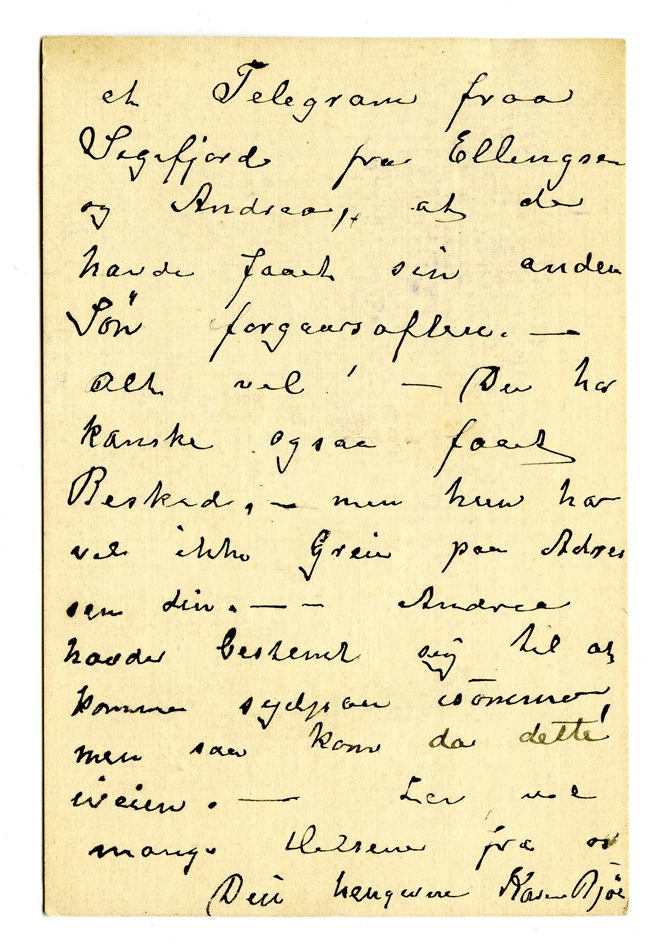 et Telegram fraa
Segefjord fra Ellingsen
og Andrea, at de
havde faaet sin anden
Sön forgaarsaften. —
Alt vel! — Du har
kanske ogsaa faaet
Besked, — men hun har
vel ikke Greie paa Adres
sen din. — — Andrea
havde bestemt sig til at
komme sydpaa isommer,
men saa kom da dette
iveien. — Lev vel
mange Hilsener fra os
Din hengivne Karen